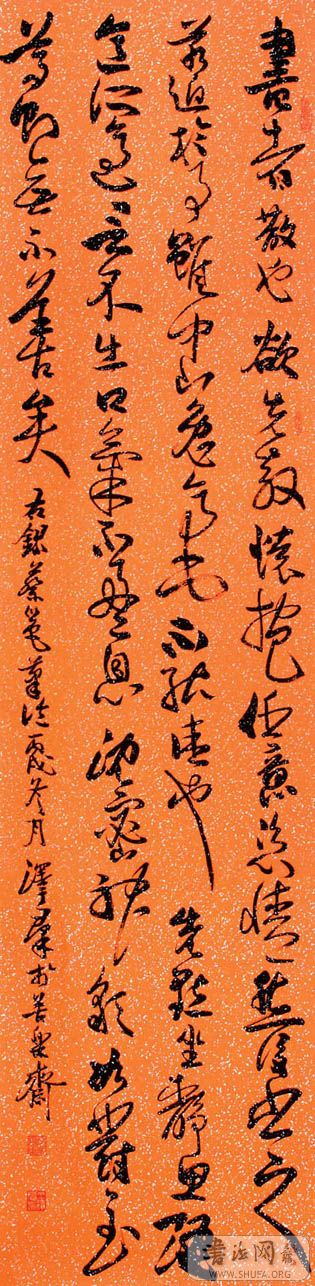 書者散也欲先散懷抱任意恣情然後書之
若迫於事雖中山兔毫不能佳也先默坐靜思隨
意所適言不出口氣不盈息沈密神彩如對至
尊則無不善矣
右録蔡邕筆論丙戌冬月澤於齋
书法网
WWW.SHUFA.ORG